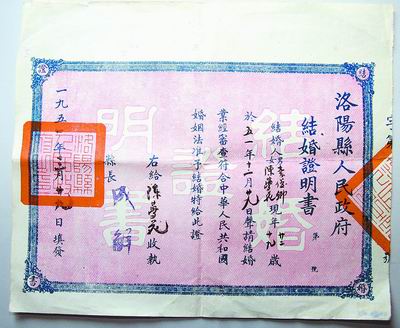 洛陽縣人民政府
結婚證明書 第 號
結婚人 男 女陳學元 現年 廿二 十九 歲
於五一年十二月九日聲請結婚
業經審查符合中華人民共和國
婚姻法准予結婚特給此證
右給陳學元收執
縣長
一九五一年十二月十九日填發
結婚
證
明書